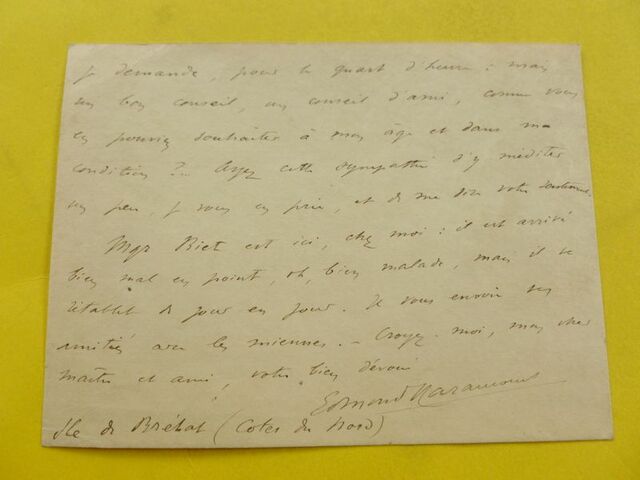 je demande, pour le quart d'heure : mais
un bon conseil, un conseil d'ami, comme vous
en pouviez souhaiter à mon âge et dans ma
condition ?... Ayez cette sympathie d'y méditer
un peu, je vous en prie, et de me dire votre sentiment.
Mgr Biet est ici, chez moi : il est arrivé
bien mal en point, oh, bien malade, mais il se
rétablit de jour en jour. Je vous envoie ses
amitiés avec les miennes. - Croyez-moi, mon cher
maître et ami, votre bien dévoué
Edmond Haraucourt
Ile de Bréhat (Cotes du Nord)